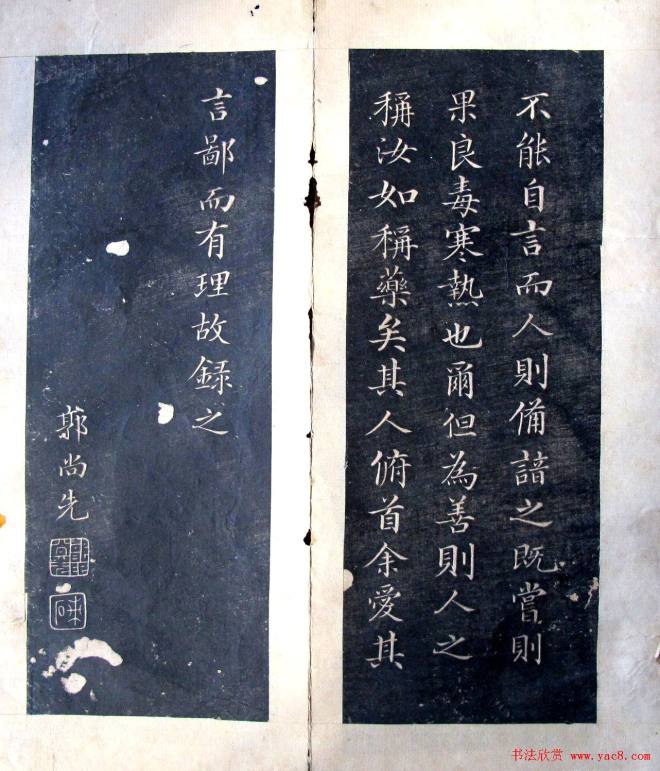 不能自言而人則備諳之既嘗則
果良毒寒熱也爾但為善則人之
稱汝如稱藥矣其人俯首余愛其
言鄙而有理故録之
郭尚先
书法欣赏 www.yac8.com